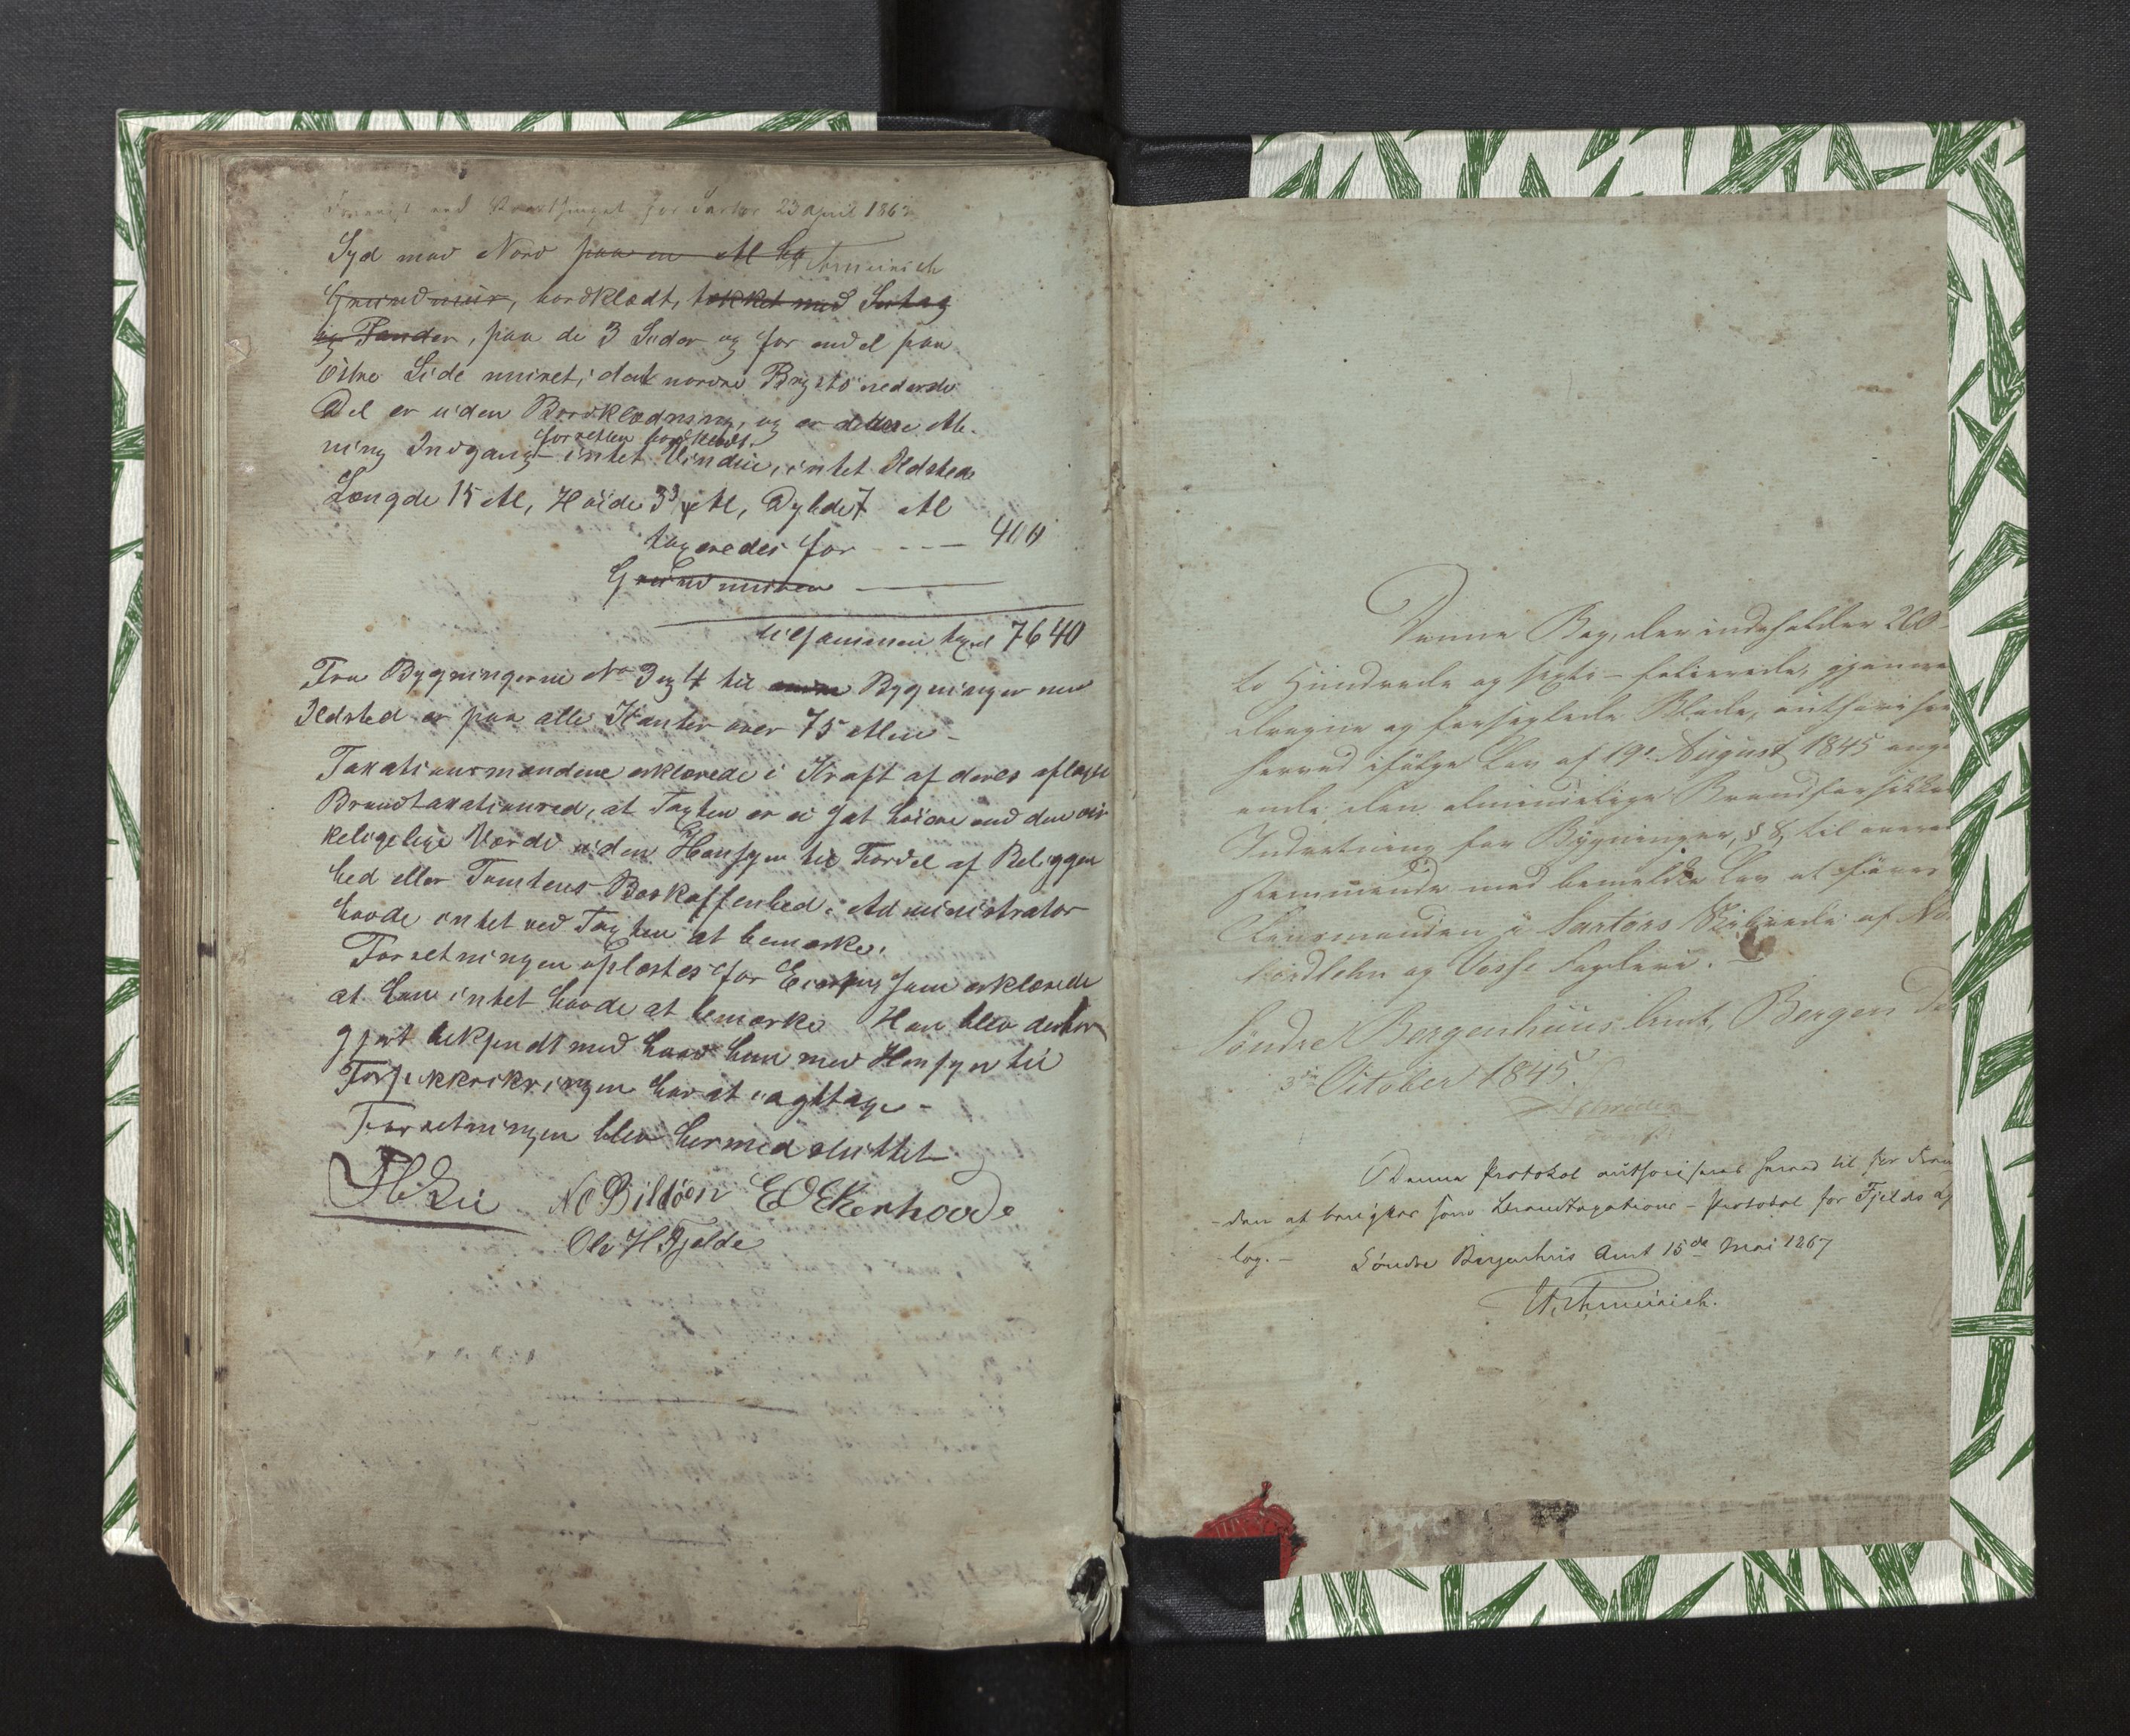 23 April 1863
Syd mod Nord paa en Al hø
Grundmuur, bordklædt, tækket med Sutag
og Pander, paa de 3 Sider og for endel paa
östre Side muret; det nordre Brysts nederste
Del er uden Bordklædning, og er dettes Aab-
forresten bordklædt.
ning Indgang - intet Vindue, intet Ildsted
Længde 15 Al, Höide 3 3/4 Al, Dybde 7 Al
taxeredes for - - - 400
Grundmuren
tilsammen taxd 7640
Fra Bygningerne No 3 og 4 til andre Bygninger med
Ildsted er paa alle Kanter over 75 Alen -
Taxationsmændene erklærede i Kraft af deres aflagte
Brandtaxationsed, at Taxten er ei sat höiere end den vir-
keligelige Værdi uden Hensyn til Fordel af Beliggen
hed eller Tomtens Beskaffenhed. Administrator
havde intet ved Taxten at bemærke.
Forretningen oplæstes for Eieren, som erklærede
at han intet havde at bemærke Han blev derhos
gjort bekjendt med hvad han med Hensyn til
Forsikkrikringen har at iagttage -
Forretningen blev hermed sluttet
Lie N C Bildöen E O Ekerhovde
Ole H Fjelde
Denne Bog, der indeholder 260 -
to Hundrede og sexti - folierede, gjennem
dragne og forseglede Blade, authoriseres
herved ifölge Lov af 19de August 1845 ang
ende den almindelige Brandforsikkrings
Indretning for Bygninger, § 8, til overens
stemmende med bemeldte Lov at föres
Lensmanden i Sartors Skibrede af Nord
hordlehn og Voss Fogderi.
Söndre Bergenhuus Amt, Bergen den
3die October 1845.
Denne Protokol authoriseres herved til for Frem
- den at benyttes som Brandtaxations - Protokol for Fjelds
- lag. - Söndre Bergenhus Amt 15de Mai 1867